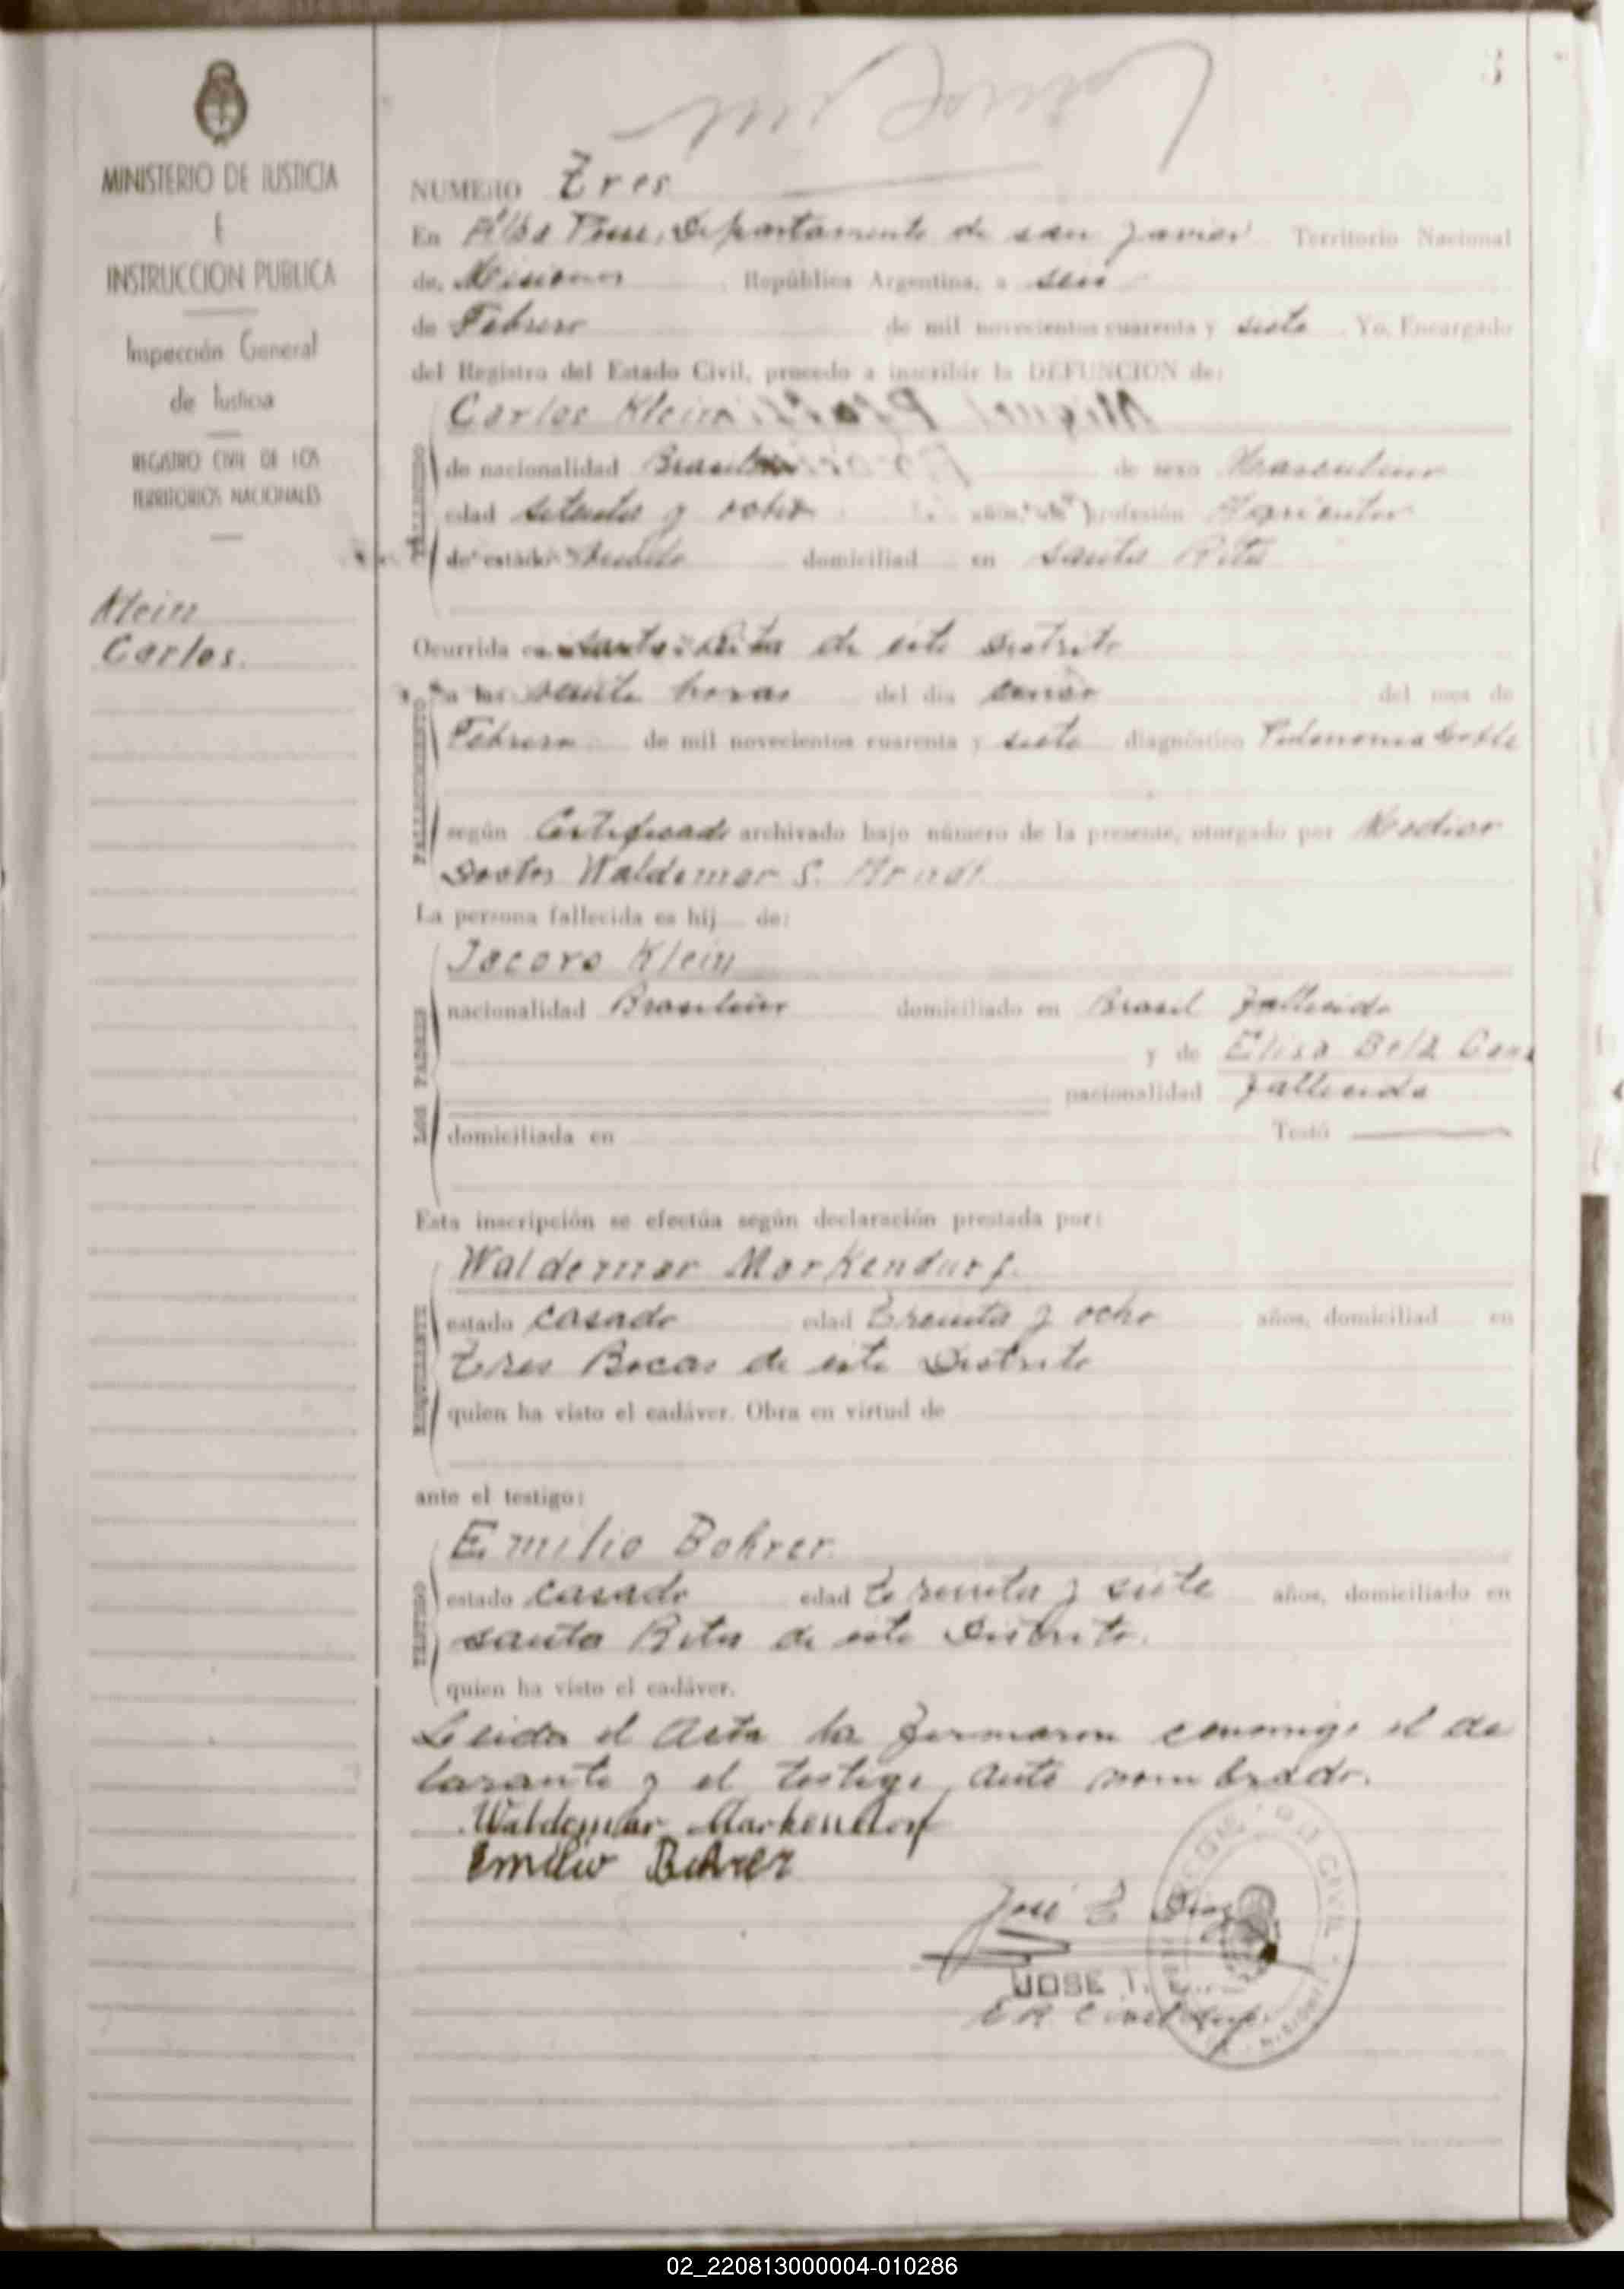 3
MINISTERIO DE JUSTICIA
E
INSTRUCCION PUBLICA
Inspección General
de Justicia
REGISTRO CIVIL DE LOS
TERRITORIOS NACIONALES
Klein
Carlos.
NUMERO Tres
En Alba Posse, Departamento de san Javier Territorio Nacional
de, Misiones República Argentina, a seis
de Febrero de mil novecientos cuarenta y siete Yo, Encargado
del Registro del Estado Civil, procedo a inscribir la DEFUNCION de:
Carlos Klein
FALLECIDO
de nacionalidad de sexo Masculino
edad setenta y ocho años, de profesión
de estado domiciliad en Santa Rita
Ocurrida en Santa Rita de este Distrito
FALLECIMIENTO
a las horas del día del mes de
Febrero de mil novecientos cuarenta y siete diagnóstico Pulmonia doble
según Certificado archivado bajo número de la presente, otorgado por Medico
Doctor Waldemar S. Arndt
La persona fallecida es hij de:
Jacovo Klein
LOS PADRES
nacionalidad Brasileño domiciliado en Brasil fallecido
y de Elisa
nacionalidad fallecida
domiciliada en Testó
Esta inscripción se efectúa según declaración prestada por:
Waldemar Markendorf.
REQUIRENTE
estado casado edad treinta y ocho años, domiciliad en
Tres Bocas de este Distrito
quien ha visto el cadáver. Obra en virtud de
ante el testigo:
Emilio Bohrer.
TESTIGO
estado casado edad treinta y siete años, domiciliado en
santa Rita de este Distrito.
quien ha visto el cadáver.
Leida el Acta la firmaron conmigo el de
larante y el testigo ante nombrado.
Waldemar Markendorf
Emilio Bohrer
José Diaz
JOSE
02_220813000004-010286